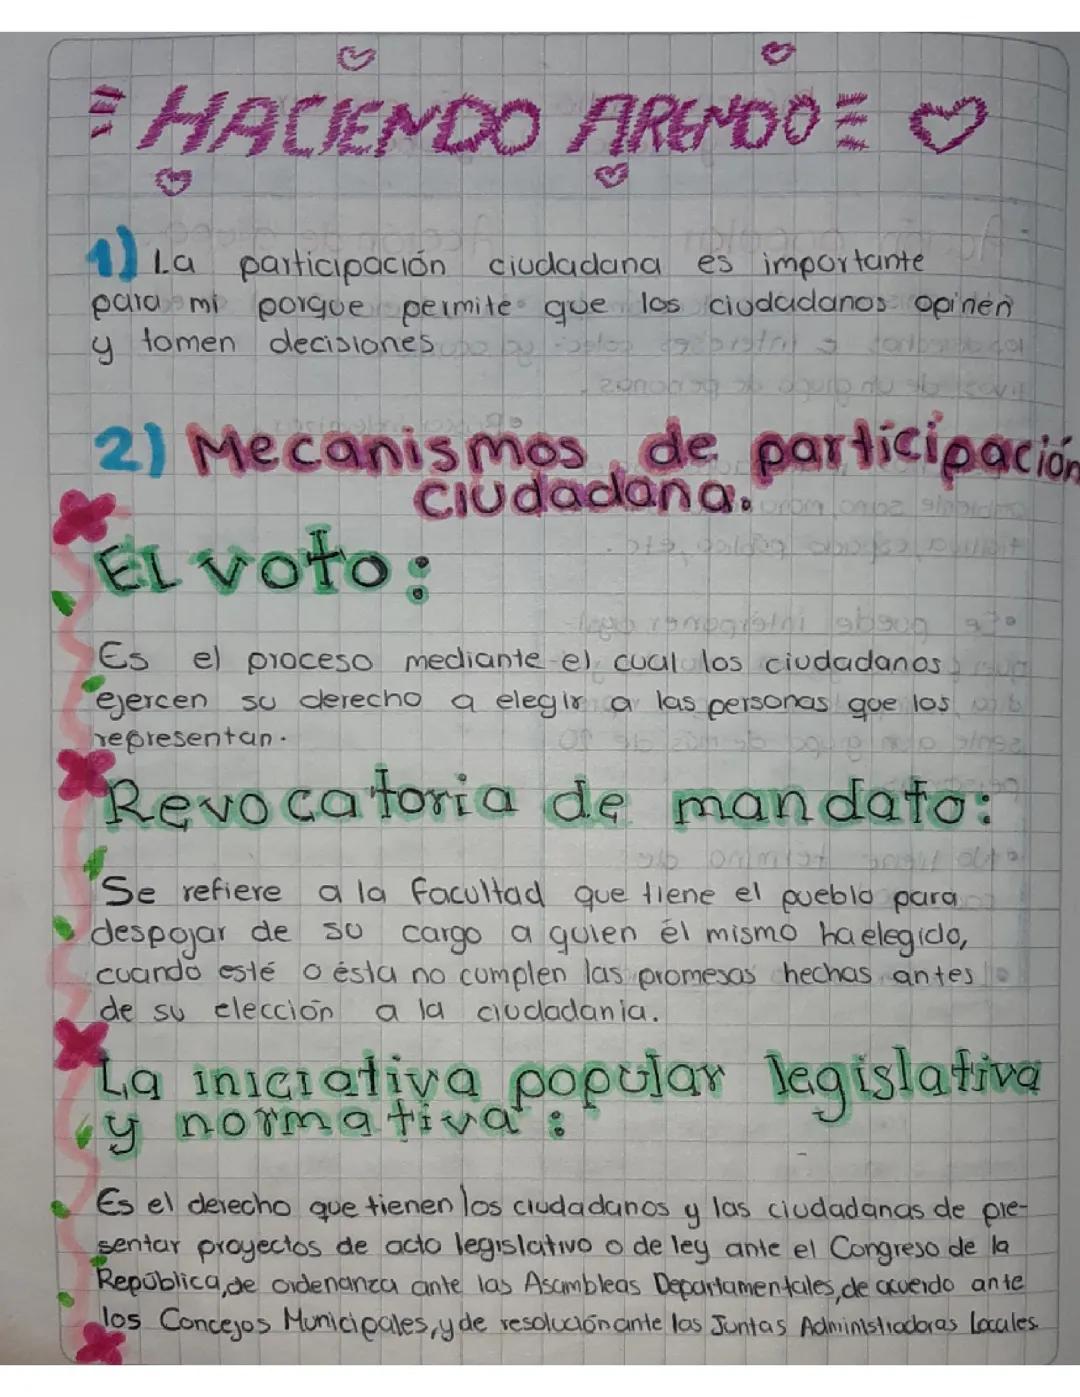 HACIENDO ARENDO
1) La participación ciudadana es importante
para mi porque permite que los ciudadanos opinen
y tomen decisiones
2) Mecanismos de participación
ciudadana.
El voto:
Es el proceso mediante el cual los ciudadanos
ejercen su derecho a elegir a las personas que los
representan.
Revocatoria de mandato:
Se refiere a la facultad que tiene el pueblo para
despojar de su cargo a quien él mismo ha elegido,
cuando esté o ésta no cumplen las promesas hechas antes
de su elección a la ciudadania.
La iniciativa popular legislativa
y normativa:
Es el derecho que tienen los ciudadanos y las ciudadanas de pre-
sentar proyectos de acto legislativo o de ley ante el Congreso de la
República, de ordenanza ante las Asambleas Departamentales, de acuerdo ante
los Concejos Municipales, y de resolución ante las Juntas Administradoras Locales